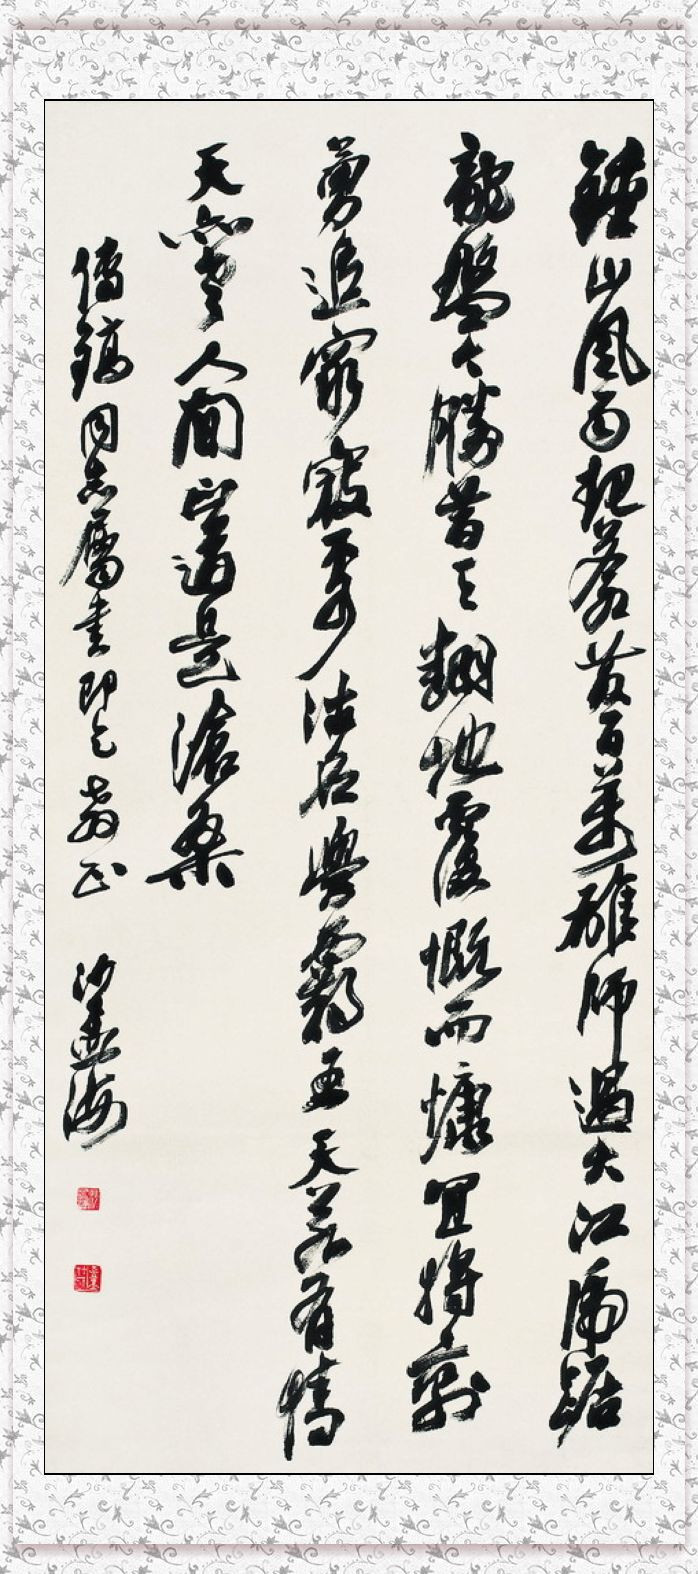 鍾山風雨起蒼黄百萬雄師過大江虎踞
龍盤今勝昔天翻地覆慨而慷宜將剩
勇追窮寇不可沽名學霸王天若有情
天亦老人間正道是滄桑
同志屬書即乞教正 沙孟海